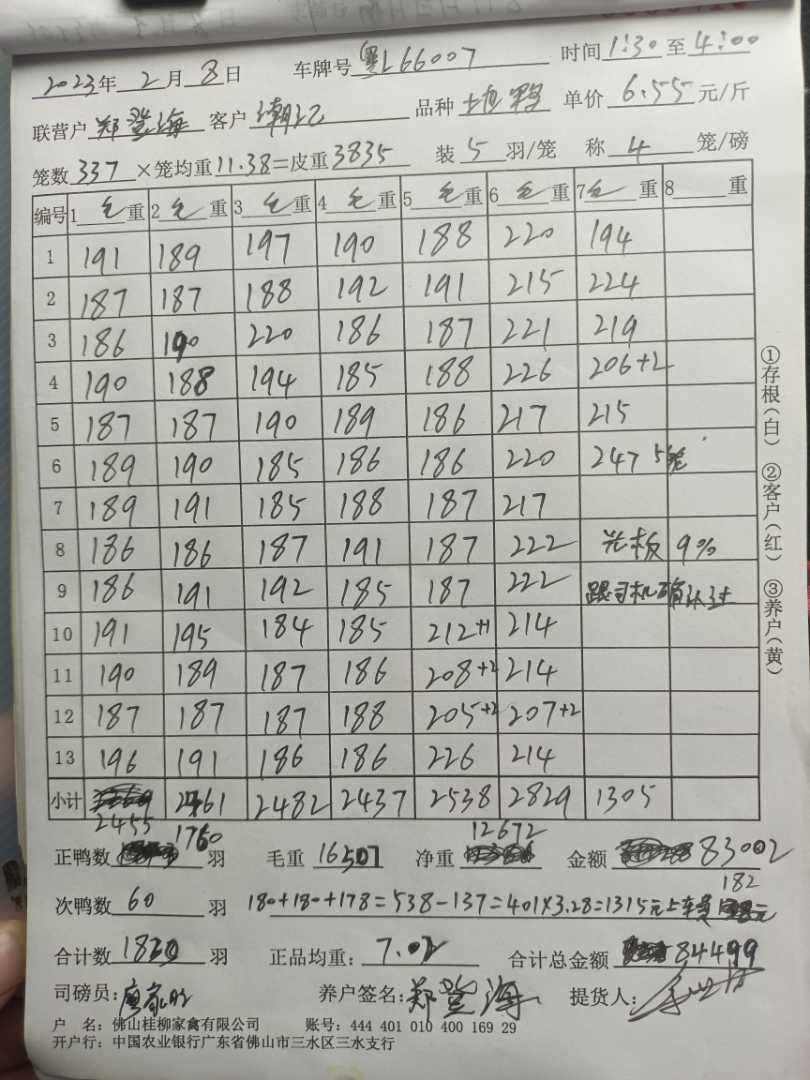 2023年 2月 8日 车牌号 粤L66007 时间 1:30 至 4:00
联营户 郑登海 客户 潮记 品种 土也鸭 单价 6.55 元/斤
笼数 337 ×笼均重 11.38=皮重 3835 装 5 羽/笼 称 4 笼/磅
编号 1 毛 重 2 毛 重 3 毛 重 4 毛 重 5 毛 重 6 毛 重 7 毛 重 8 重
1 191 189 197 190 188 220 194
2 187 187 188 192 191 215 224
3 186 190 220 186 187 221 219
4 190 188 194 185 188 226 206+2
5 187 187 190 189 186 217 215
6 189 190 185 186 186 220 247 5笼
7 189 191 185 188 187 217
8 186 186 187 191 187 222 光板 9%
9 186 191 192 185 187 222 跟司机确认过
10 191 195 184 185 212+1 214
11 190 189 187 186 208+2 214
12 187 187 187 188 205+2 207+2
13 196 191 186 186 226 214
小计 2455 2461 2482 2437 2538 2829 1305
正鸭数 1760 羽 毛重 16507 净重 12672 金额 83002
次鸭数 60 羽 180+180+178=538-137=401×3.28=1315元 上车费 182元
合计数 1820 羽 正品均重: 7.02 合计总金额 84499
司磅员: 养户签名: 郑登海 提货人:
户 名: 佛山桂柳家禽有限公司 账号: 444 401 010 400 169 29
开户行: 中国农业银行广东省佛山市三水区三水支行
①存根(白) ②客户(红) ③养户(黄)